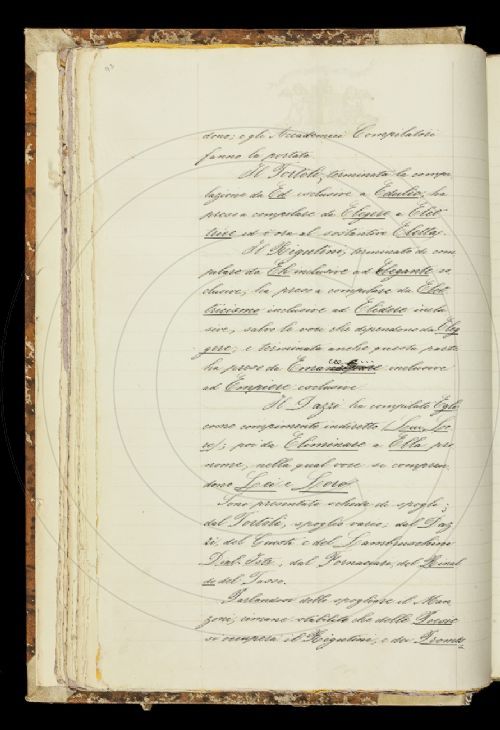 dono; e gli Accademici Compilatori
fanno la portata.
Il Tortoli, terminata la compi-
lazione da Ed inclusive a Edulio, ha
preso a compilare da Elegire a Elet-
trice ed è ora al sostantivo Eletta.
Il Rigutini, terminato di com-
pilare da Eh inclusive ad Elegante es-
clusive, ha preso a compilare da Elet-
tricismo inclusive ad Elidere inclu-
sive, salvo le voci che dipendono da Eleg-
gere; e terminata anche questa parte
ha preso da inclusive
ad Empiere esclusive.
Il Dazzi ha compilato Egli
come compimento indiretto (Lui, Lo-
ro); poi da Eliminare a Ella pro-
nome, nella qual voce si compren-
dono Lei e Loro.
Sono presentate schede di spogli;
dal Tortoli, spoglio vario; dal Daz-
zi, del Giusti e del Lambruschini
Dial. Istr.; dal Fornaciari, del Rinal-
do del Tasso.
Parlandosi dello spogliare il Man-
zoni, rimane stabilito che delle Poesie
si occuperà il Rigutini, e dei Promes-